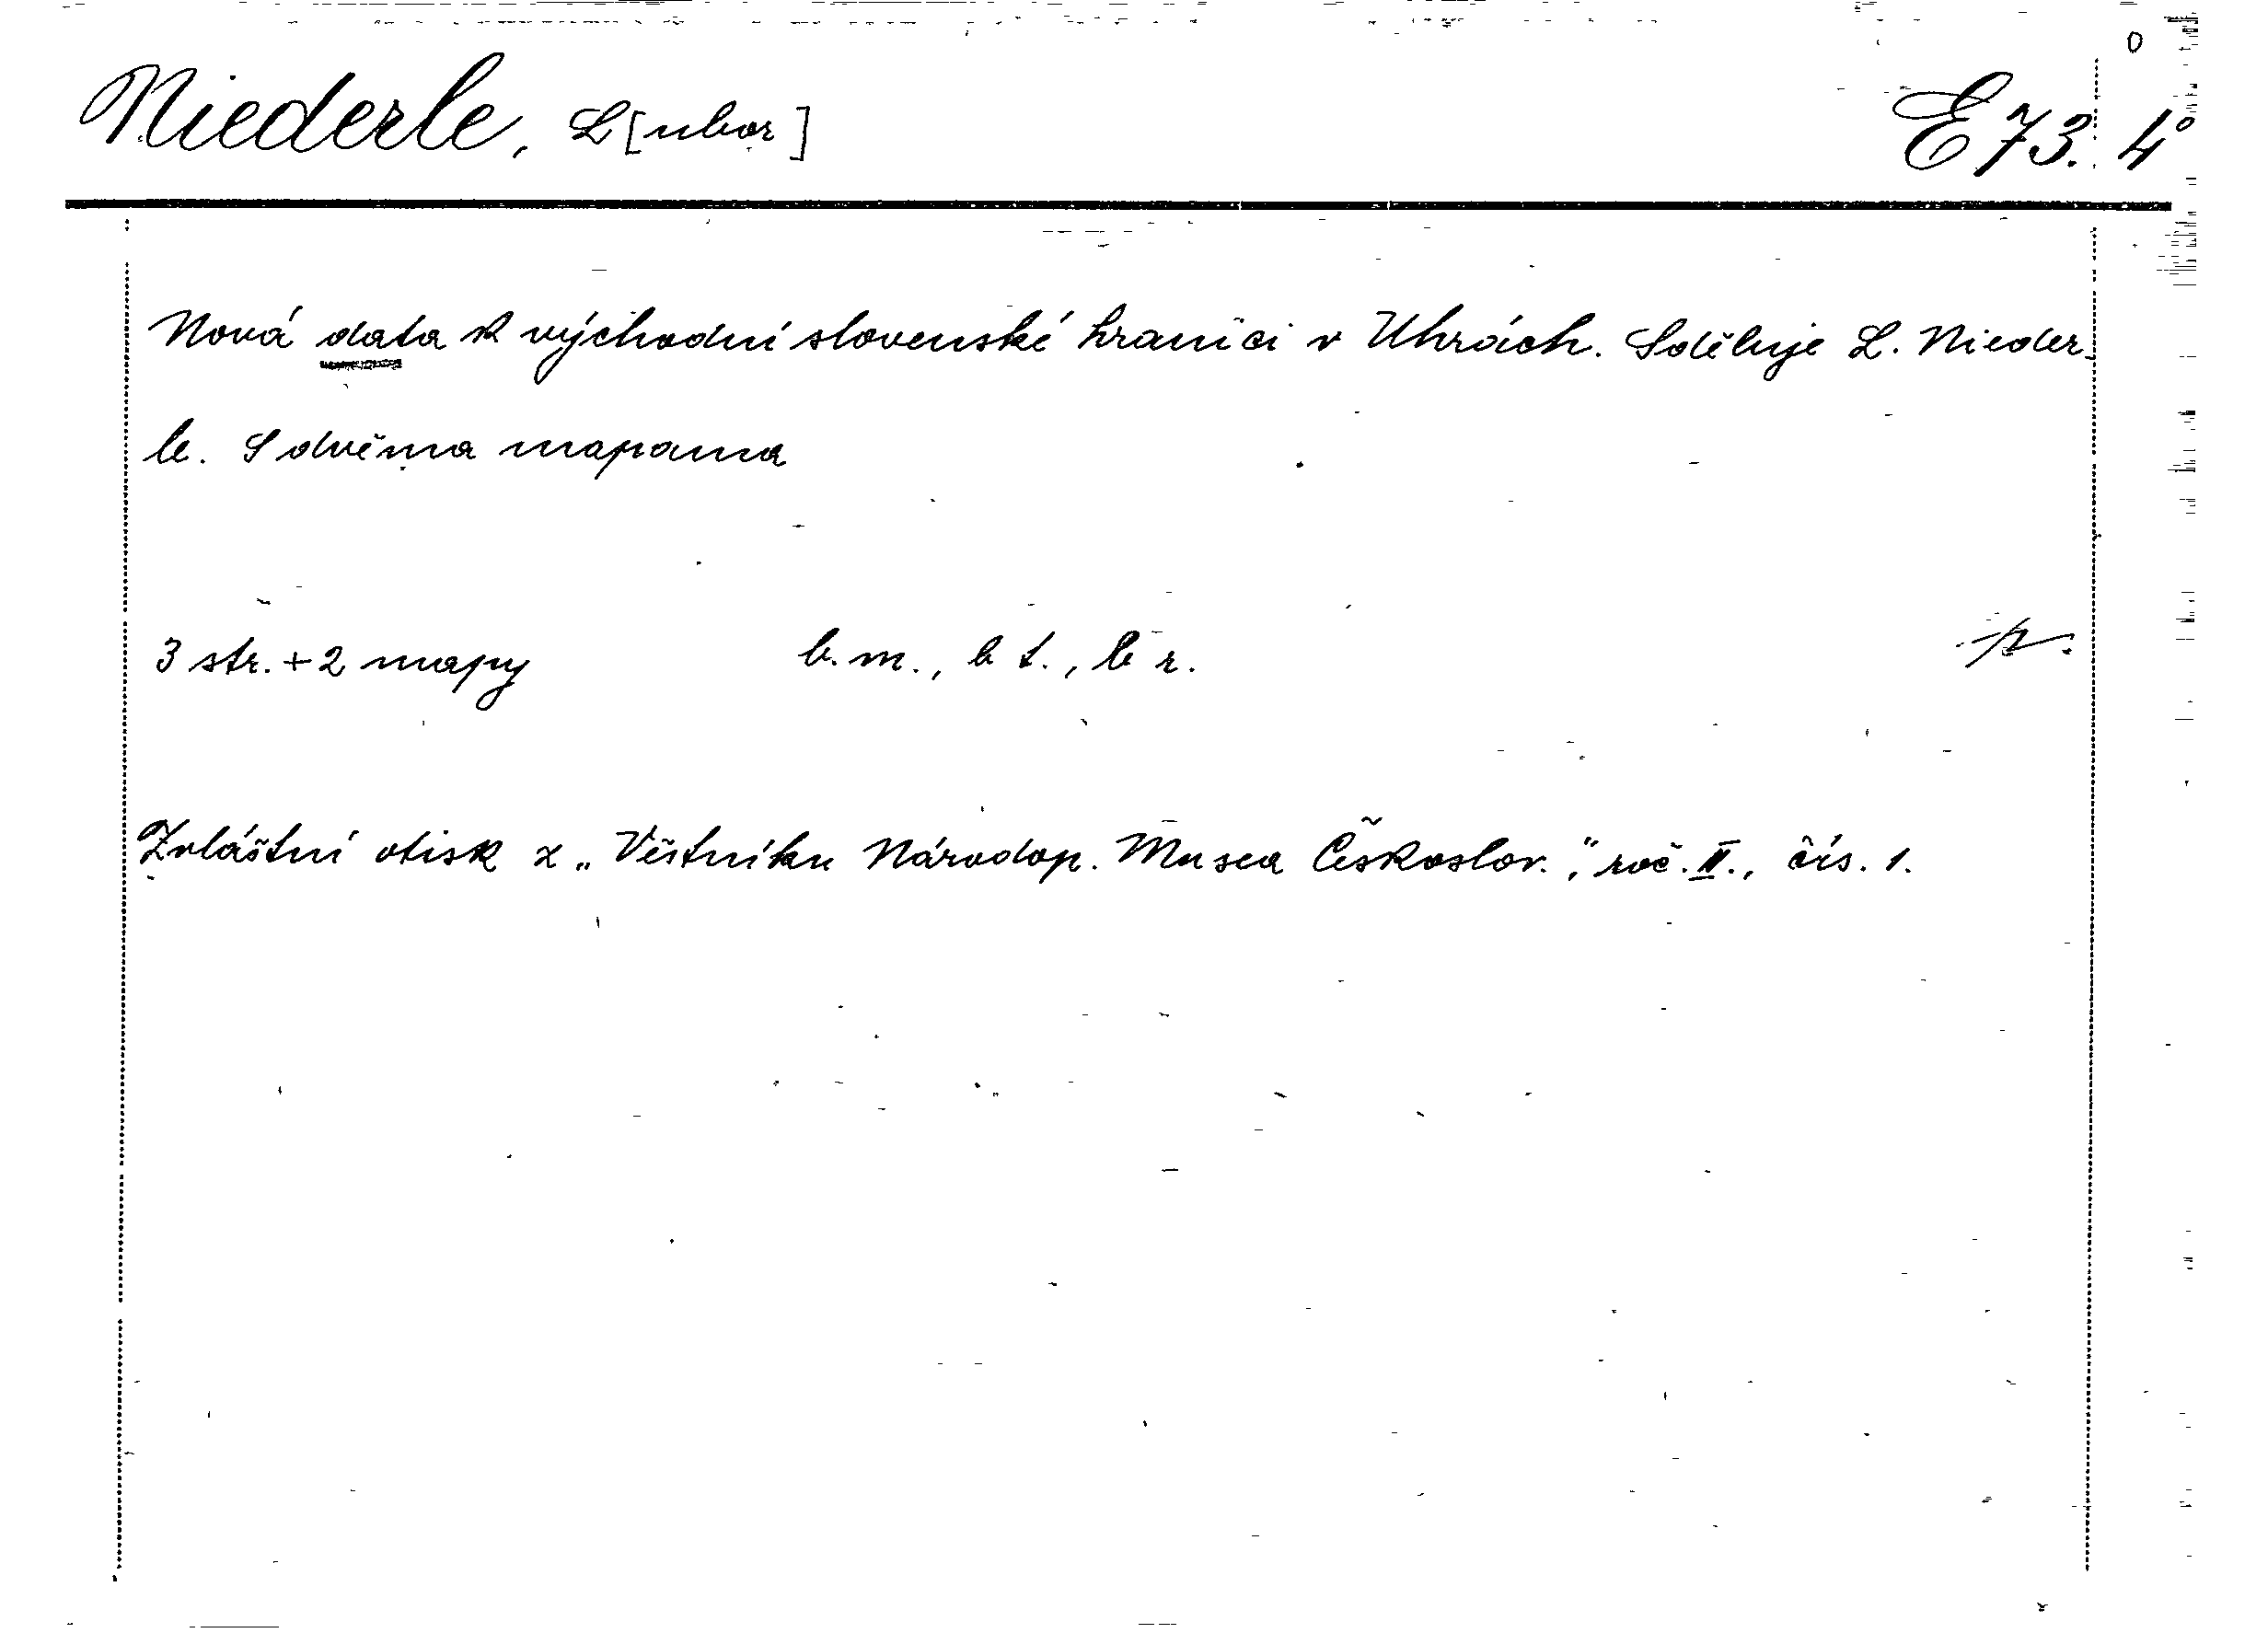 Niederle, L[ubor] E 73. 4°
Nová data k východní slovenské hranici v Uhrách. Sděluje L. Nieder-
le. S dvěma mapama
3 str. + 2 mapy b. m., b t., b r. p.
Zvláštní otisk z „Věstníku Národop. Musea Českoslov.", roč. II., čís. 1.